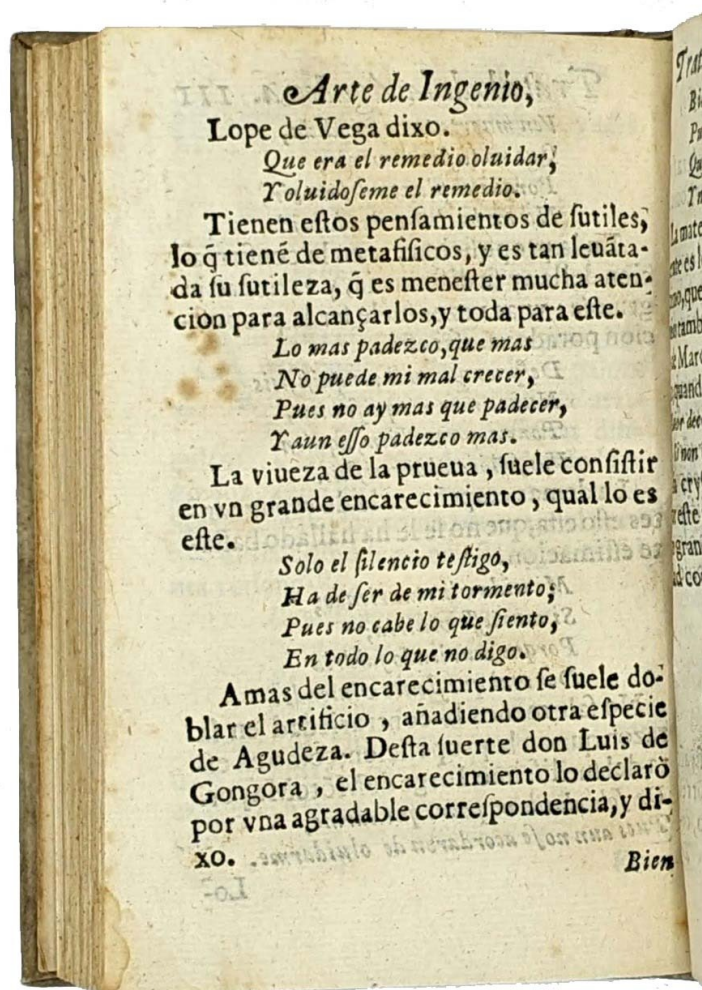 Arte de Ingenio,
Lope de Vega dixo.
Que era el remedio oluidar,
Y oluidoſeme el remedio.
Tienen eſtos penſamientos de ſutiles,
lo q̃ tienẽ de metafiſicos, y es tan leuãta-
da ſu ſutileza, q̃ es meneſter mucha aten-
cion para alcançarlos, y toda para eſte.
Lo mas padezco, que mas
No puede mi mal crecer,
Pues no ay mas que padecer,
Y aun eſſo padezco mas.
La viueza de la prueua, ſuele conſiſtir
en vn grande encarecimiento, qual lo es
eſte.
Solo el ſilencio teſtigo,
Ha de ſer de mi tormento;
Pues no cabe lo que ſiento,
En todo lo que no digo.
Amas del encarecimiento ſe ſuele do-
blar el artificio, añadiendo otra eſpecie
de Agudeza. Deſta ſuerte don Luis de
Gongora, el encarecimiento lo declarò
por vna agradable correſpondencia, y di-
xo.
Bien